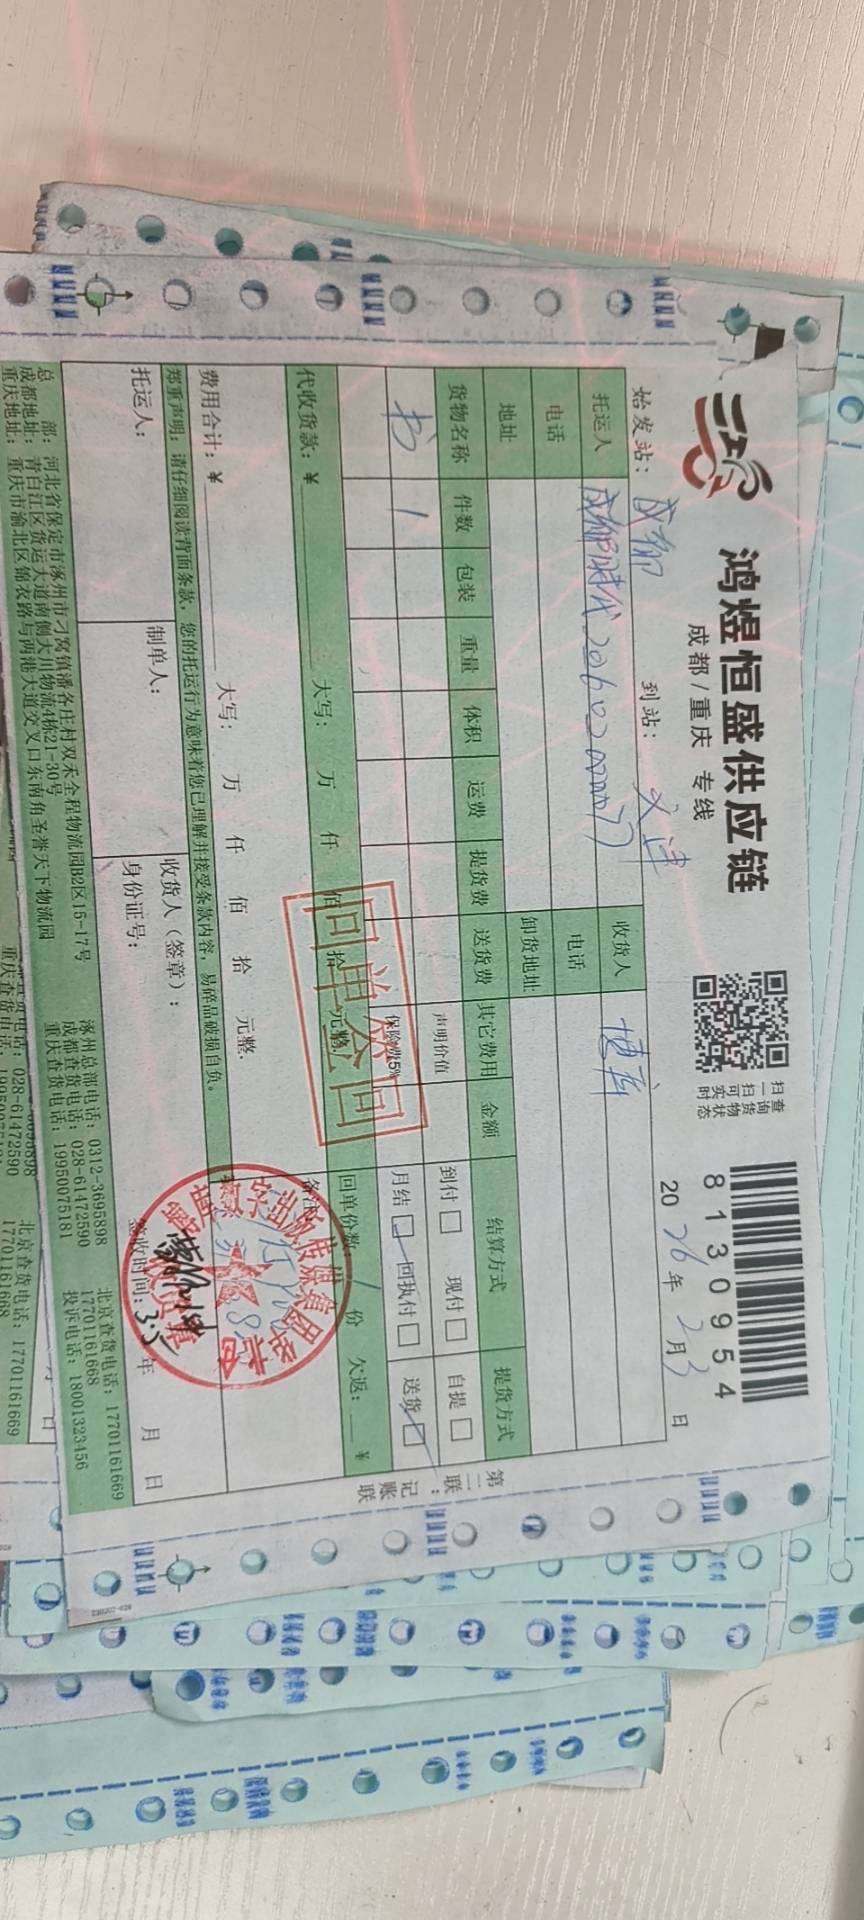 鸿煜恒盛供应链
成都/重庆 专线
扫一扫可实时
查询货物状态
8130954
始发站： 成都 到站： 天津 2026年2月3日
托运人 成都时代 收货人 博库
电话 电话
地址 卸货地址
货物名称 件数 包装 重量 体积 运费 提货费 送货费 其它费用 金额 结算方式 提货方式
书 1 声明价值 到付 现付 自提
保险费5‰ 月结 回执付 送货
代收货款：¥ 大写： 万 仟 佰 拾 元整 回单份数 1 份 欠返： ¥
费用合计：¥ 大写： 万 仟 佰 拾 元整 备注：
郑重声明：请仔细阅读背面条款，您的托运行为意味着您已理解并接受条款内容，易碎品破损自负。
托运人： 制单人： 收货人（签章）：
身份证号： 签收时间：3.5 年 月 日
总 部：河北省保定市涿州市刁窝镇潘各庄村双禾全程物流园B2区15-17号 涿州总部电话：0312-3695898 北京查货电话：17701161669
成都地址：青白江区货运大道南侧大川物流4栋21-30号 成都查货电话：028-61472590 17701161668
重庆地址：重庆市渝北区锦衣路与两港大道交叉口东南角圣誉天下物流园 重庆查货电话：19950075181 投诉电话：18001323456
第二联：记账联
回单签回
028-61472590
北京查货电话：17701161669
重庆查货电话：19950075181
17701161668
月 日